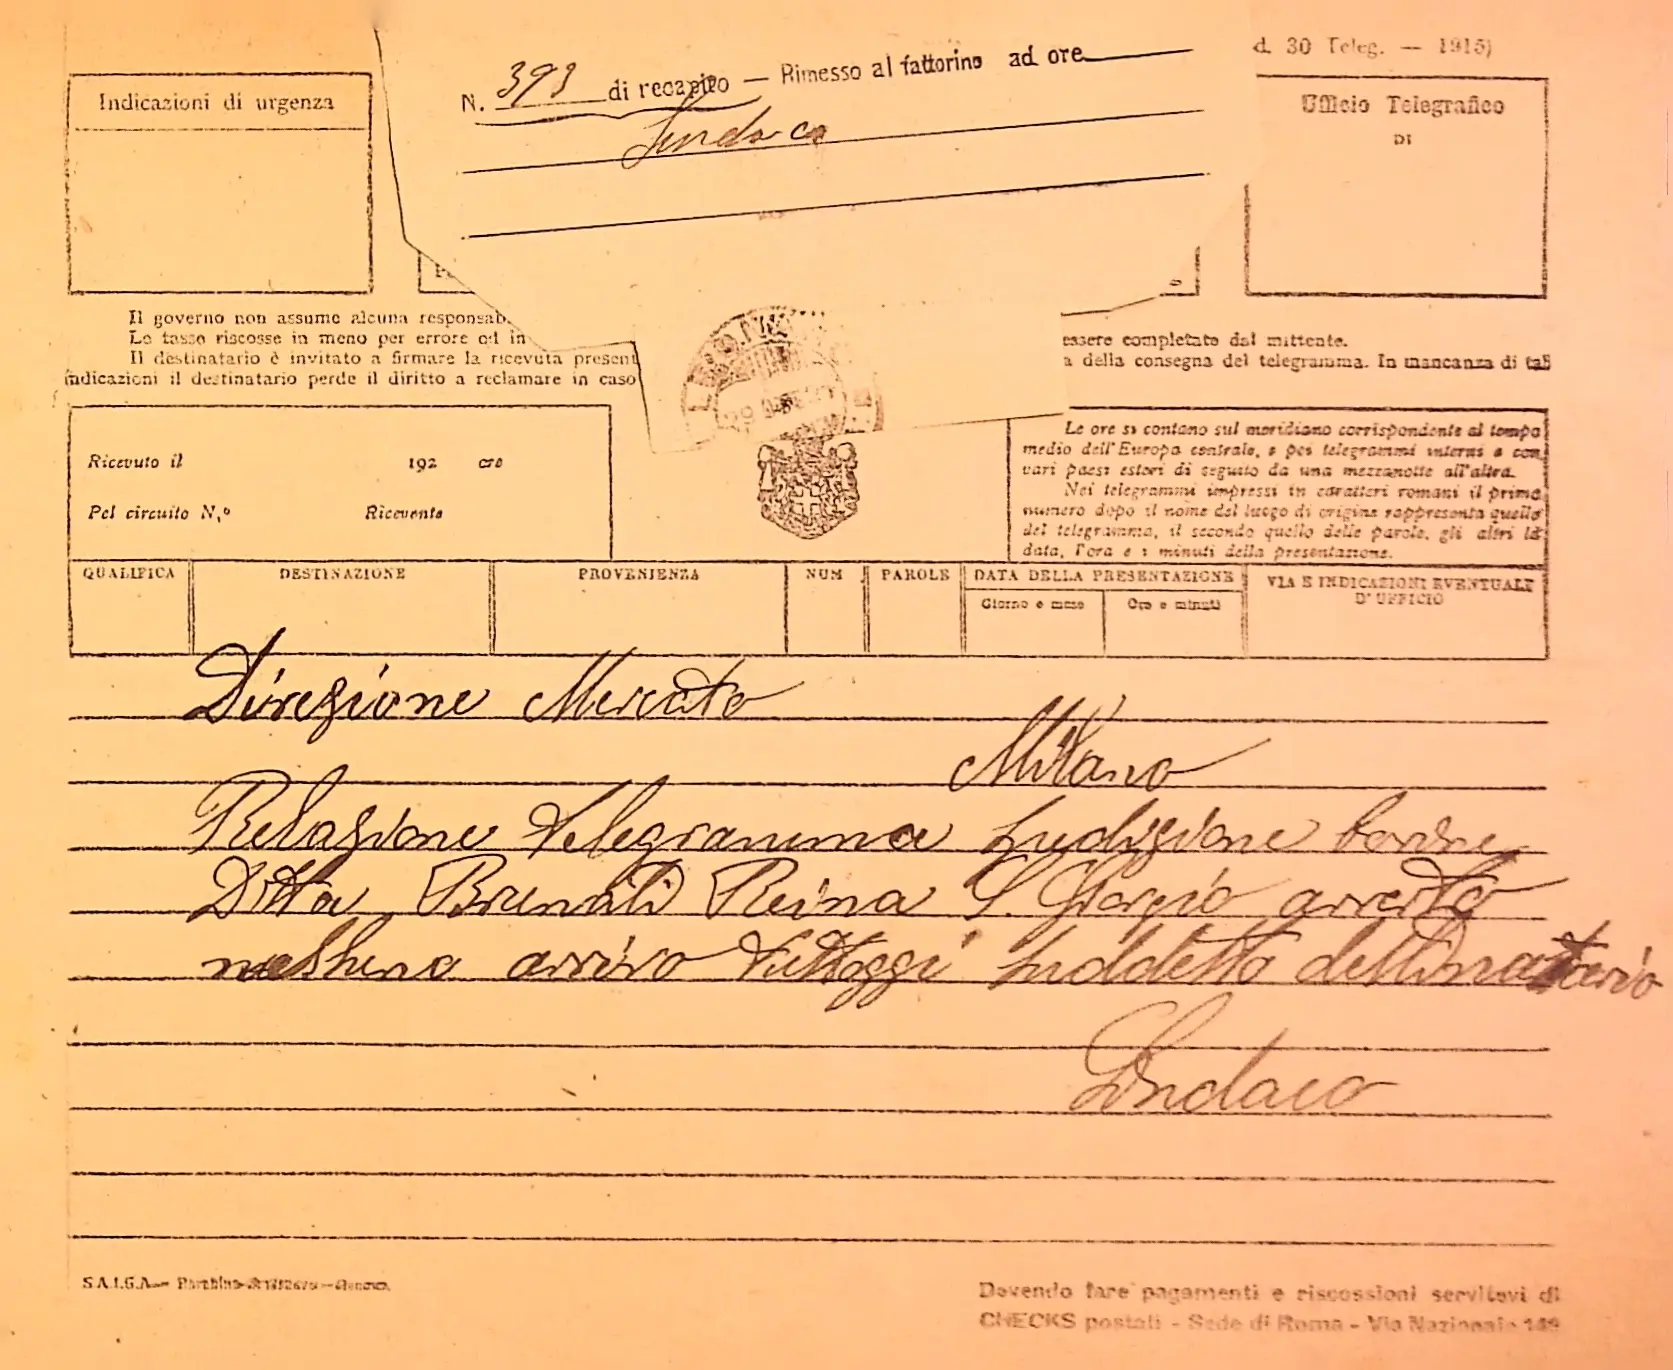 d. 30 Teleg. — 1915)
N. 393 di recapito — Rimesso al fattorino ad ore
Sindaco
Indicazioni di urgenza
Ufficio Telegrafico
DI
Il governo non assume alcuna responsab
Le tasse riscosse in meno per errore od in
Il destinatario è invitato a firmare la ricevuta present
indicazioni il destinatario perde il diritto a reclamare in caso
essere completato dal mittente.
a della consegna del telegramma. In mancanza di tali
Ricevuto il 192 ore
Pel circuito N.° Ricevente
Le ore si contano sul meridiano corrispondente al tempo
medio dell'Europa centrale, e pei telegrammi interni e con
vari paesi esteri di seguito da una mezzanotte all'altra.
Nei telegrammi impressi in caratteri romani il primo
numero dopo il nome del luogo di origine rappresenta quello
del telegramma, il secondo quello delle parole, gli altri la
data, l'ora e i minuti della presentazione.
QUALIFICA DESTINAZIONE PROVENIENZA NUM PAROLE DATA DELLA PRESENTAZIONE VIA E INDICAZIONI EVENTUALE
D'UFFICIO
Giorno e mese Ore e minuti
Direzione Mercato
Milano
Relazione telegramma spedizione bovine
Ditta Brunati Reina S. Giorgio
arrivo suddetto destinatario
Sindaco
S.A.I.G.A.
Dovendo fare pagamenti e riscossioni servitevi di
CHECKS postali - Sede di Roma - Via Nazionale 149